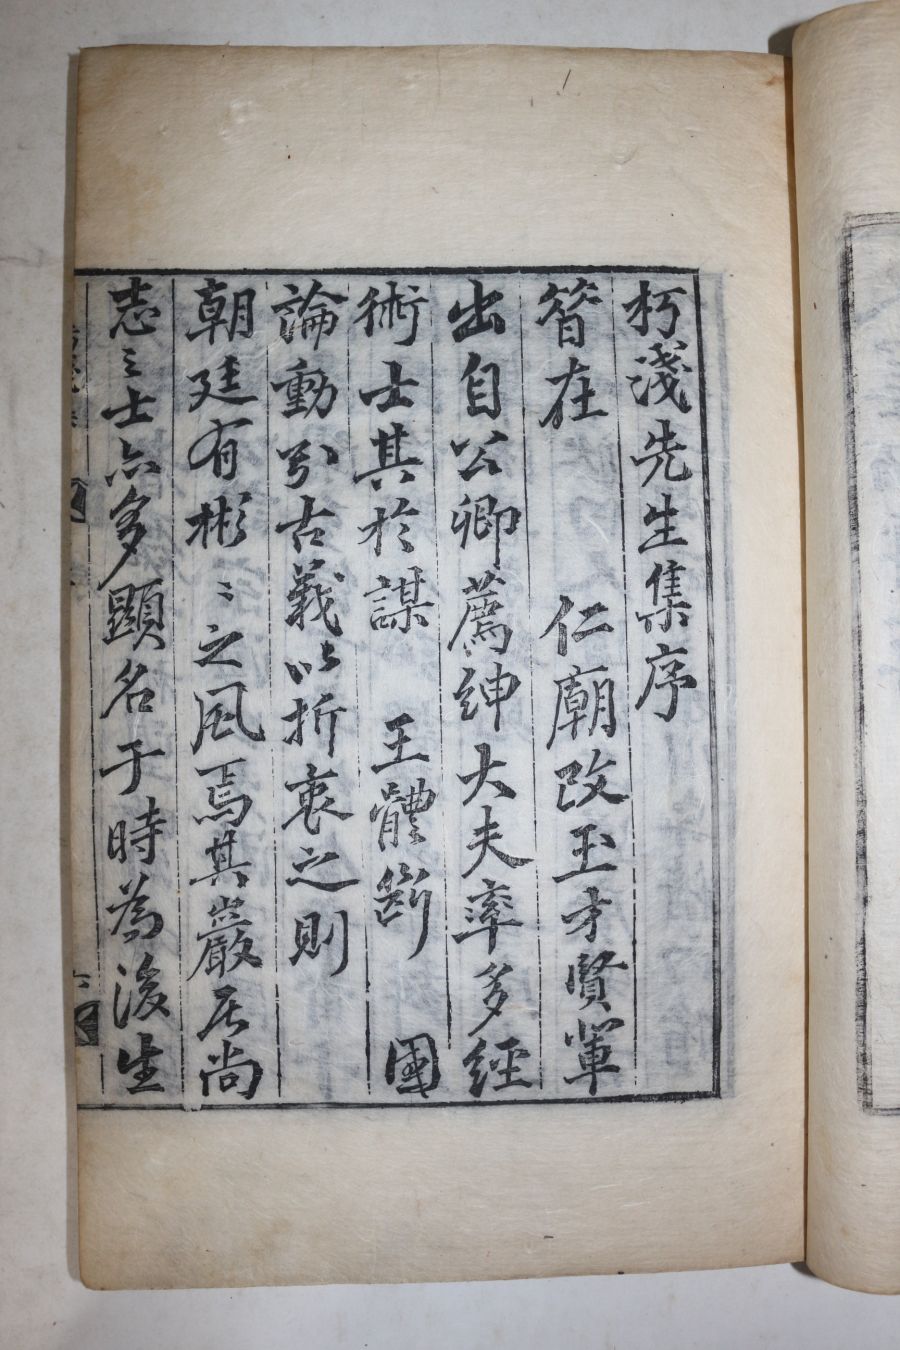 朽淺先生集序
昔在 仁廟改玉才賢輩
出自公卿薦紳大夫率多經
術士其於謀 王體斷 國
論動引古義以折衷之則
朝廷有彬〻之風焉其巖居尚
志〻士亦多顯名于時為後生